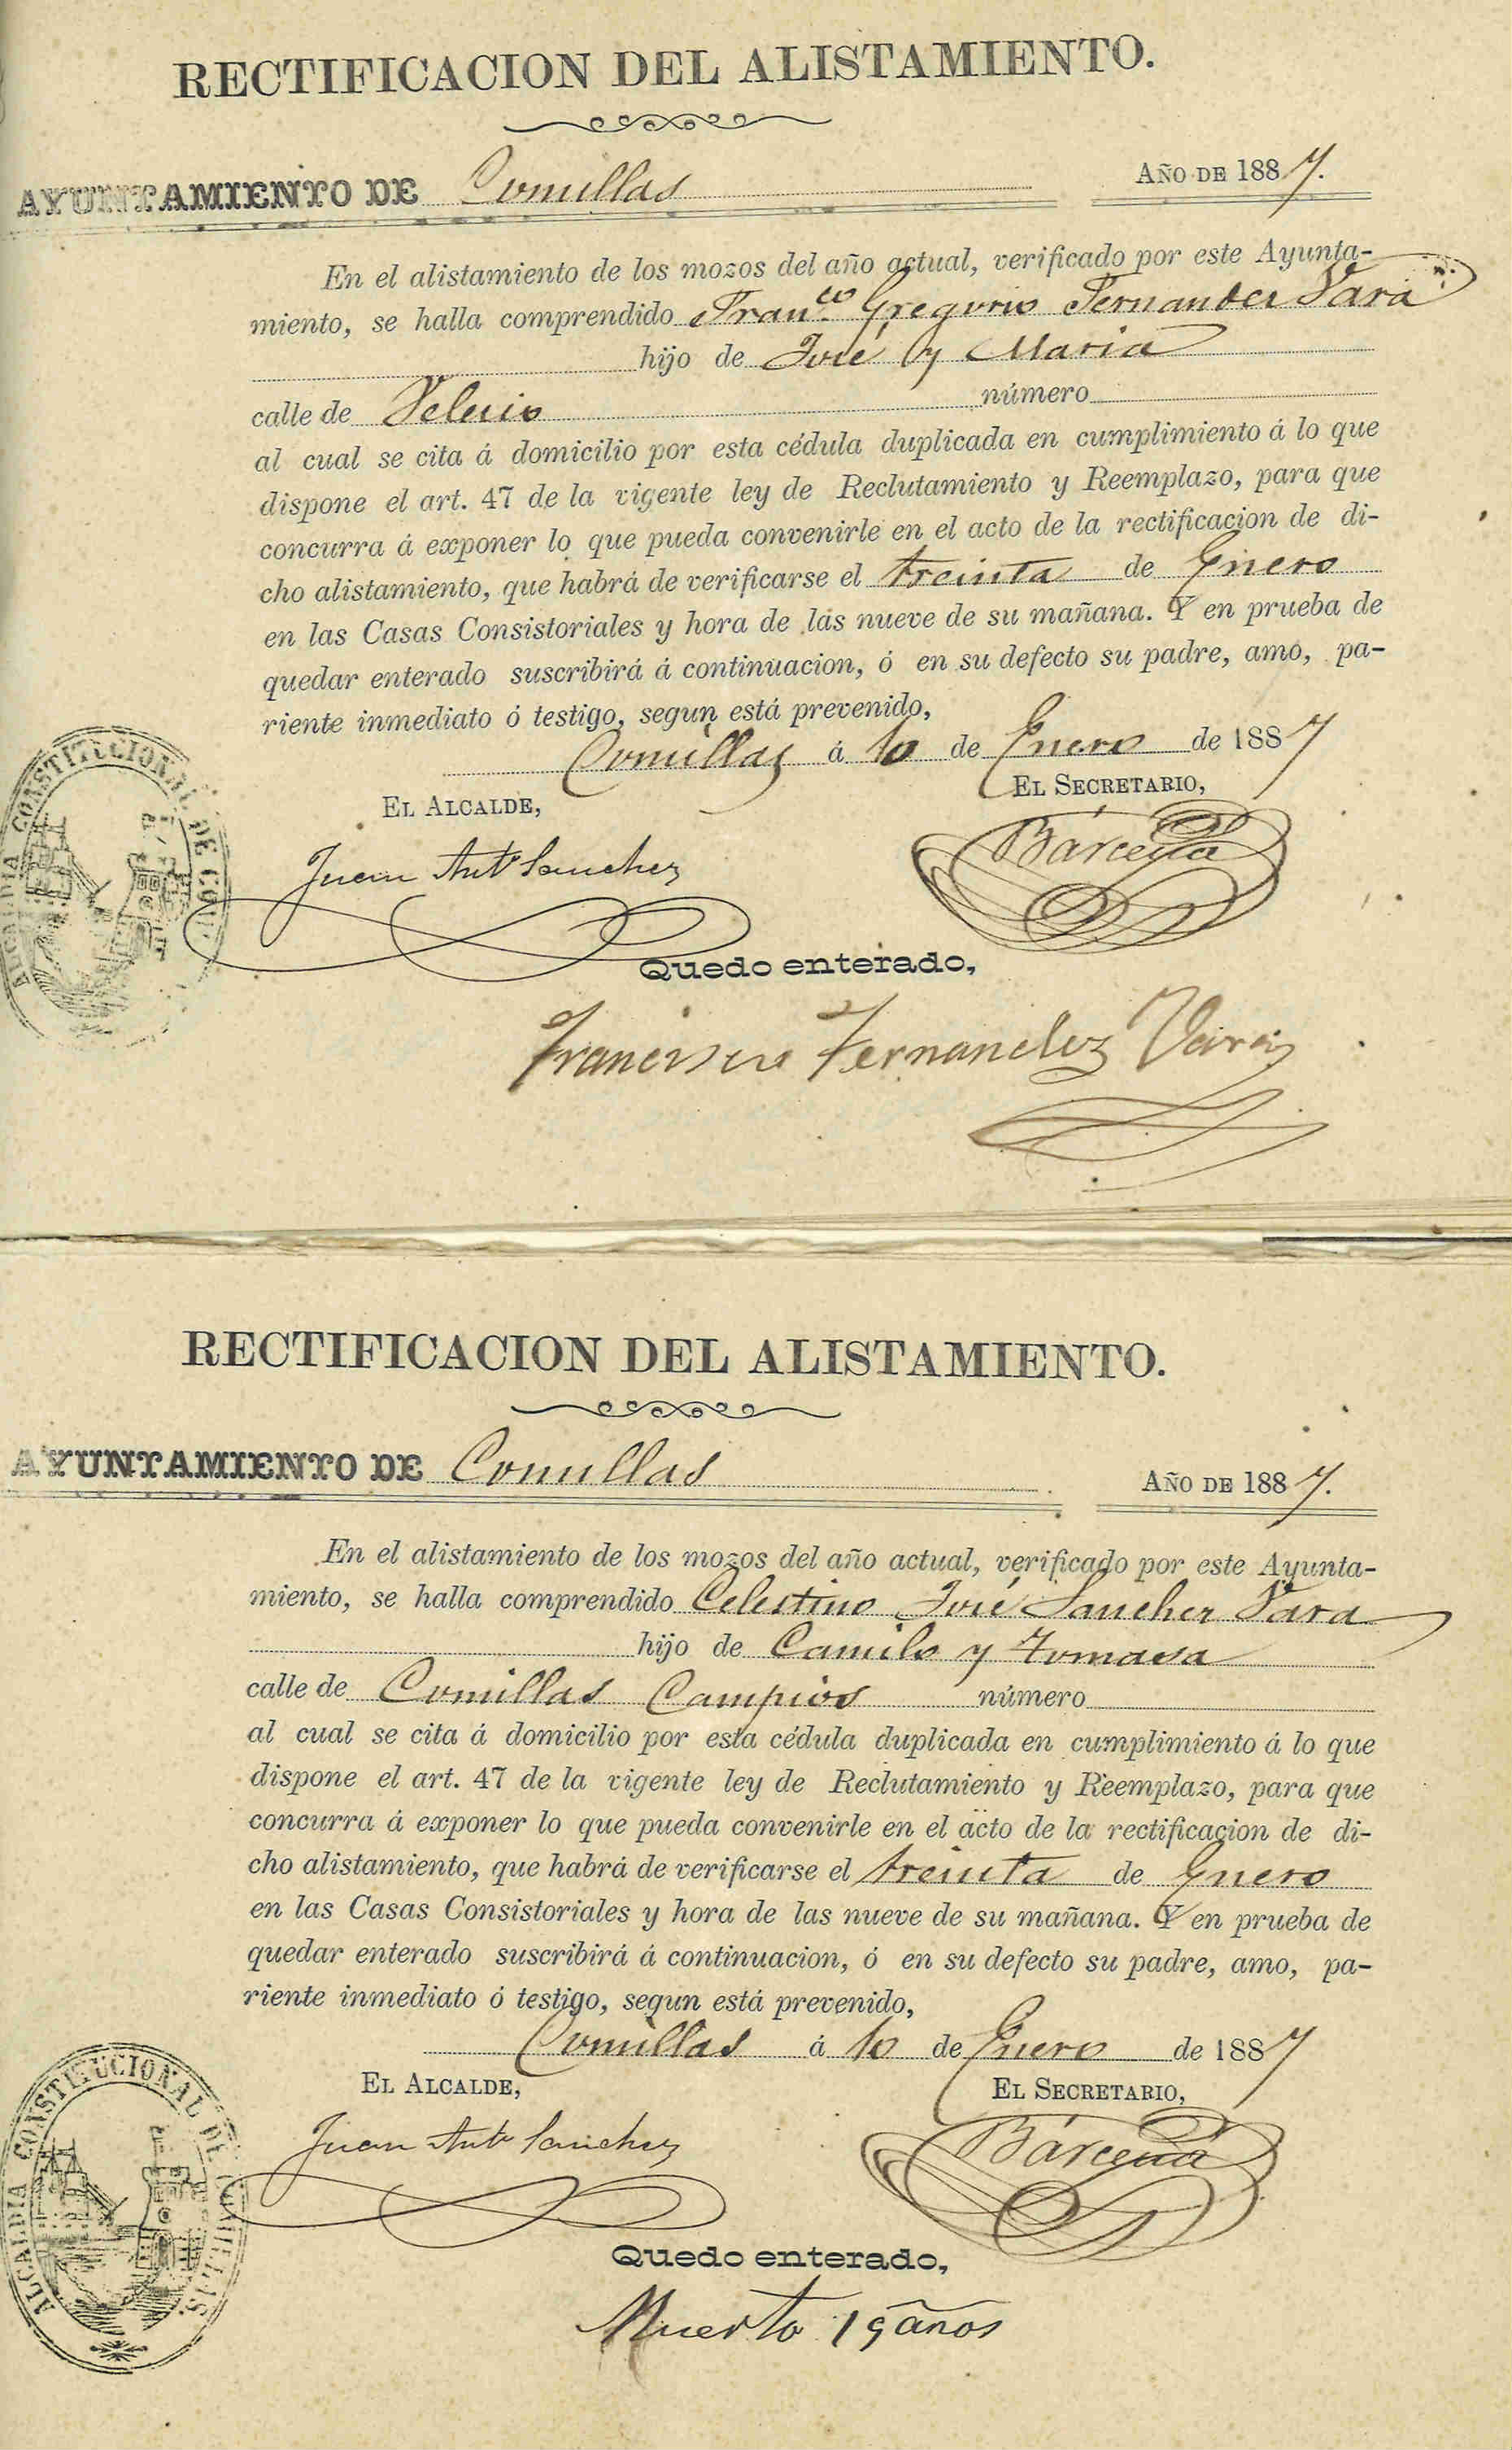 RECTIFICACION DEL ALISTAMIENTO.
AYUNTAMIENTO DE Comillas AÑO DE 1887.
En el alistamiento de los mozos del año actual, verificado por este Ayunta-
miento, se halla comprendido Fran.co Gregorio Fernandez Vara
hijo de José y Maria
calle de Velecio número
al cual se cita á domicilio por esta cédula duplicada en cumplimiento á lo que
dispone el art. 47 de la vigente ley de Reclutamiento y Reemplazo, para que
concurra á exponer lo que pueda convenirle en el acto de la rectificacion de di-
cho alistamiento, que habrá de verificarse el treinta de Enero
en las Casas Consistoriales y hora de las nueve de su mañana. Y en prueba de
quedar enterado suscribirá á continuacion, ó en su defecto su padre, amo, pa-
riente inmediato ó testigo, segun está prevenido,
Comillas á 10 de Enero de 1887
EL ALCALDE, EL SECRETARIO,
ALCALDIA CONSTITUCIONAL DE COM
Juan Ant° Sanchez Bárcena
Quedo enterado,
Francisco Fernandez Vara
RECTIFICACION DEL ALISTAMIENTO.
AYUNTAMIENTO DE Comillas AÑO DE 1887.
En el alistamiento de los mozos del año actual, verificado por este Ayunta-
miento, se halla comprendido Celestino José Sanchez Vara
hijo de Camilo y Tomasa
calle de Comillas Campios número
al cual se cita á domicilio por esta cédula duplicada en cumplimiento á lo que
dispone el art. 47 de la vigente ley de Reclutamiento y Reemplazo, para que
concurra á exponer lo que pueda convenirle en el acto de la rectificacion de di-
cho alistamiento, que habrá de verificarse el treinta de Enero
en las Casas Consistoriales y hora de las nueve de su mañana. Y en prueba de
quedar enterado suscribirá á continuacion, ó en su defecto su padre, amo, pa-
riente inmediato ó testigo, segun está prevenido,
Comillas á 10 de Enero de 1887
EL ALCALDE, EL SECRETARIO,
ALCALDIA CONSTITUCIONAL DE COMILLAS
Juan Ant° Sanchez Bárcena
Quedo enterado,
Muerto 19 años